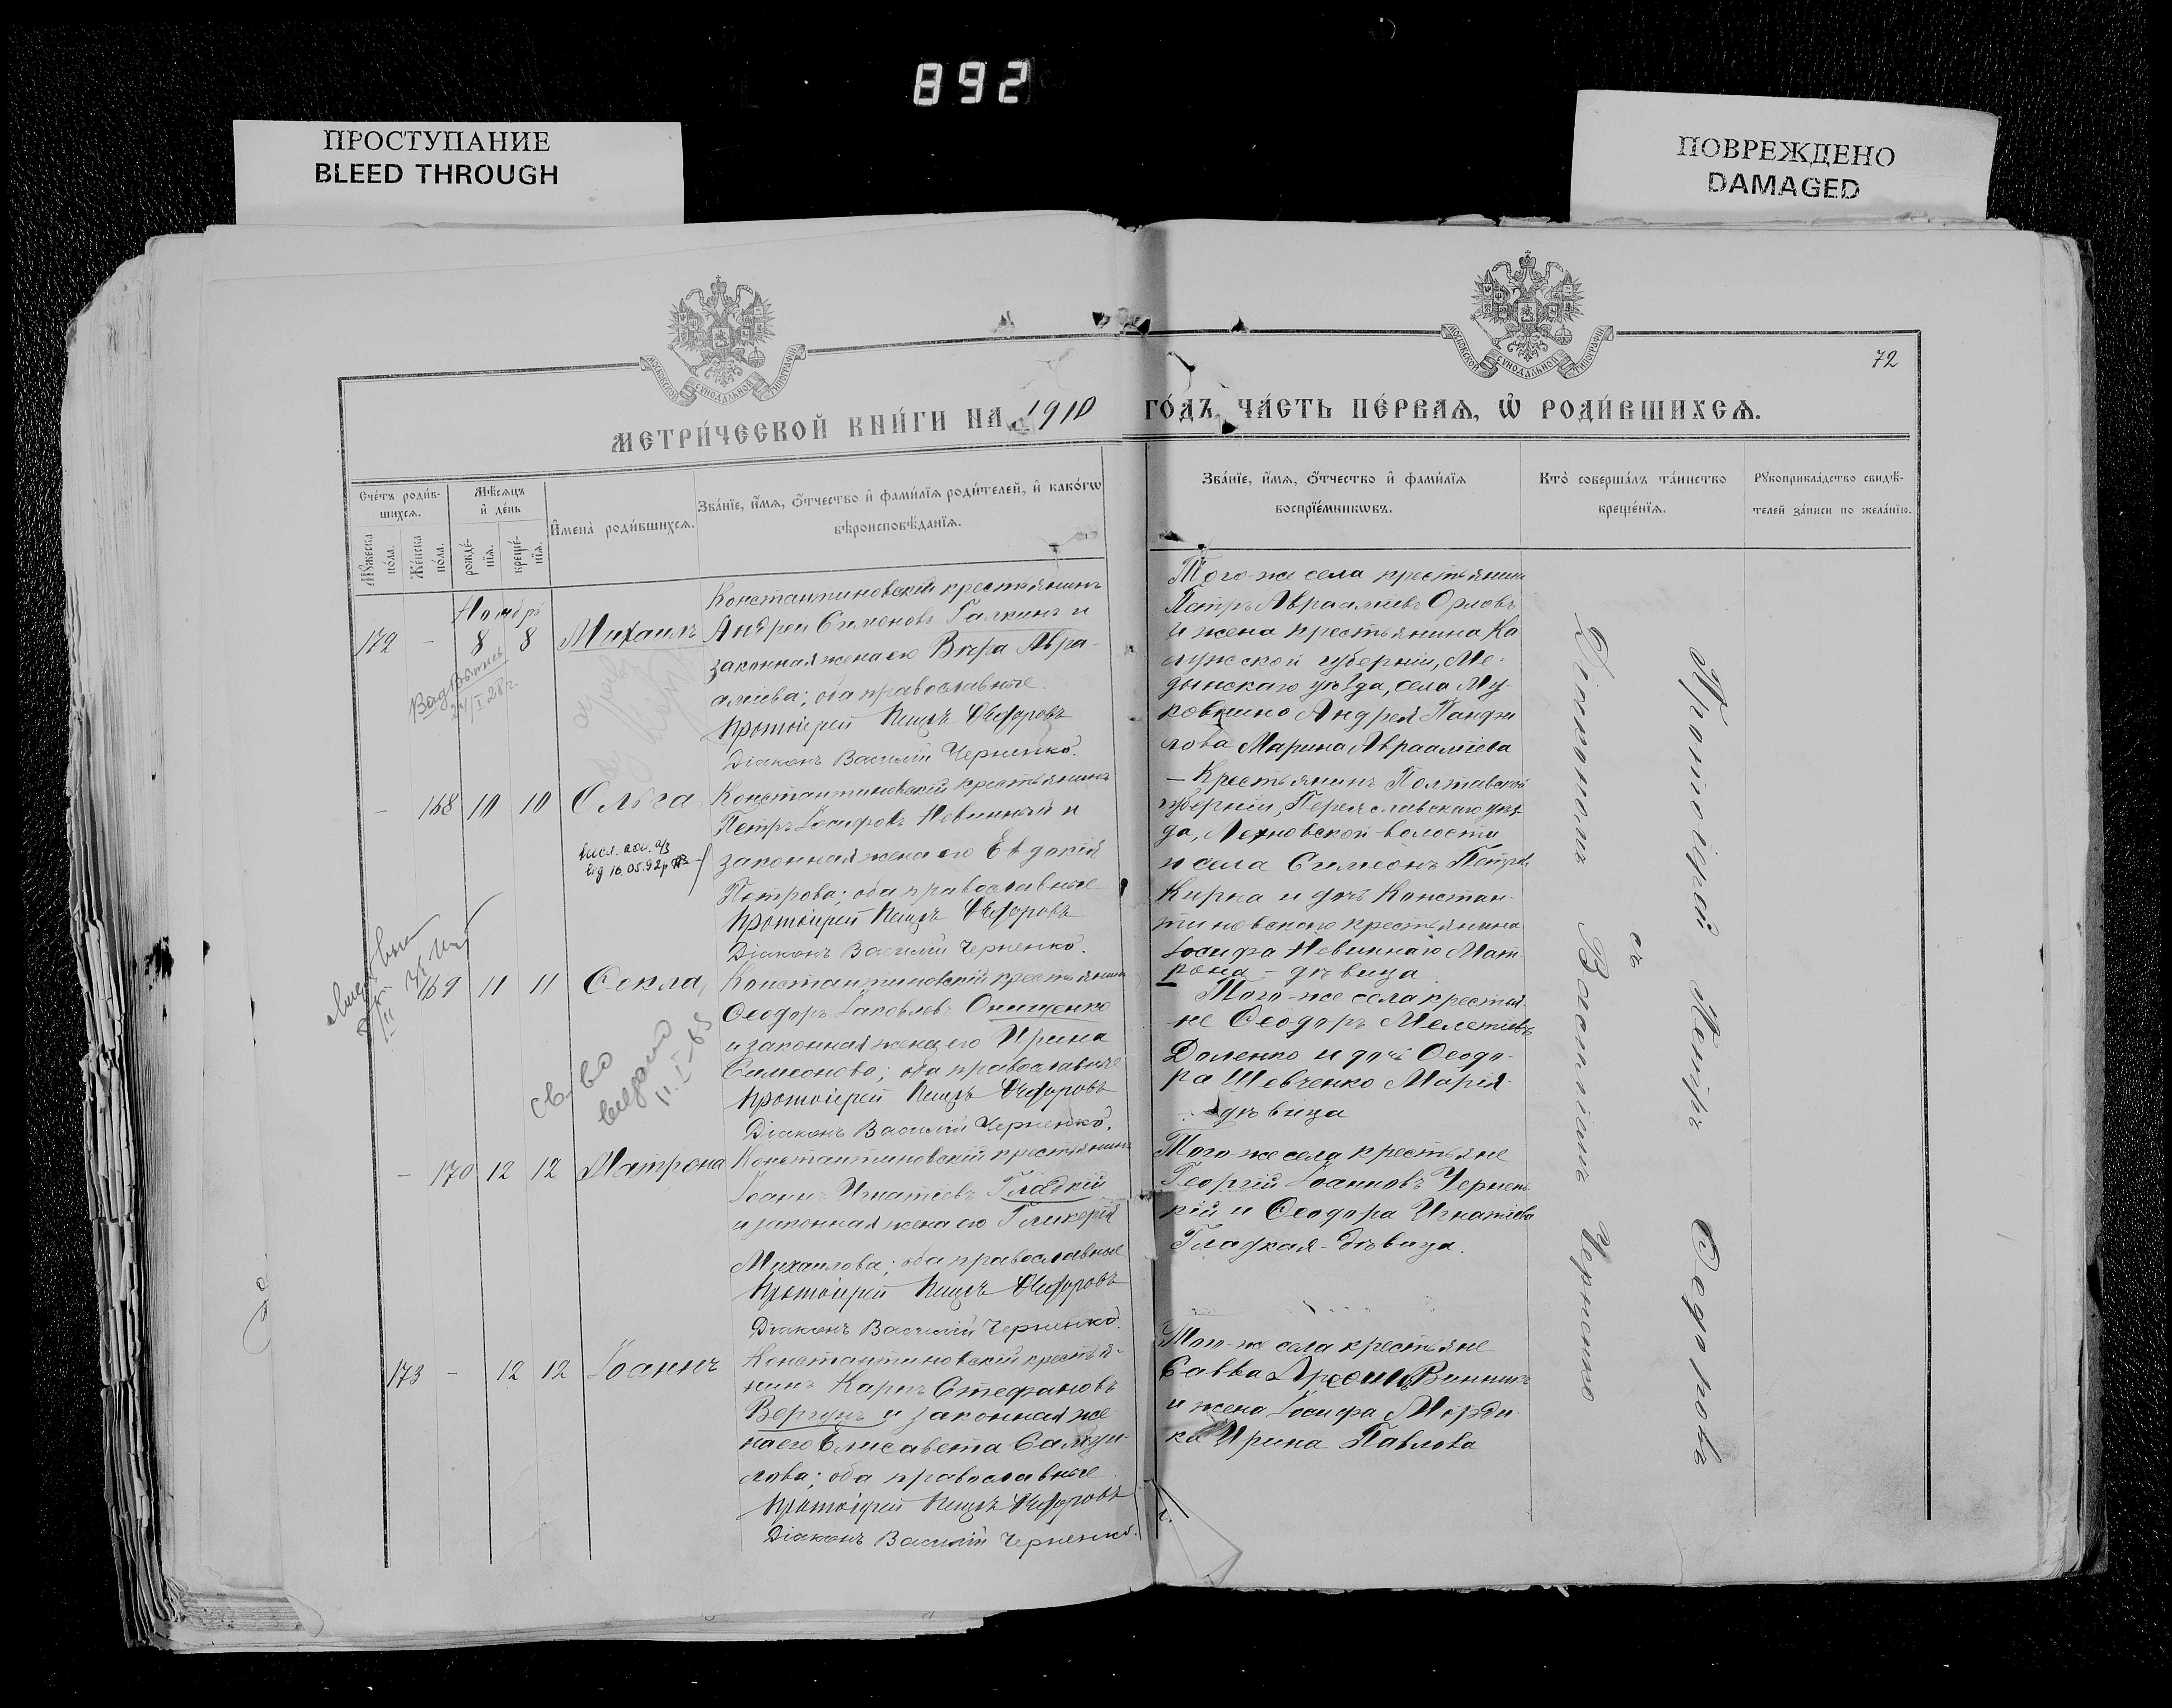 892
ПРОСТУПАНИЕ
BLEED THROUGH
ПОВРЕЖДЕНО
DAMAGED
МОСКОВСКОЙ СУНОДАЛЬНОЙ ТИПОГРАФІИ
МОСКОВСКОЙ СУНОДАЛЬНОЙ ТИПОГРАФІИ
72
МЕТРИ́ЧЕСКОЙ КНИ́ГИ НА 1910 ГО́ДЪ, ЧА́СТЬ ПЕ́РВАѦ, Ѡ҆ РОДИ́ВШИХСѦ.
Сче́тъ роди́в-
шихсѧ.
Мꙋжеска по́ла.
Же́нска по́ла.
Мѣ́сѧцъ
и҆ де́нь
рожде́-
нїѧ.
креще́-
нїѧ.
И҆мена̀ роди́вшихсѧ.
Зва́нїе, и҆́мѧ, ѻ҆́тчество и҆ фами́лїѧ роди́телей, и҆ како́гѡ
вѣроисповѣ́данїѧ.
Зва́нїе, и҆́мѧ, ѻ҆́тчество и҆ фами́лїѧ
воспрїе́мникѡвъ.
Кто̀ соверша́лъ та́инство
креще́нїѧ.
Рꙋкоприкла́дство свидѣ́-
телей за́писи по жела́нїю.
Ноябрь
172 - 8 8 Михаилъ
Константиновскій крестьянинъ
Андрей Симоновъ Галкинъ и
законная жена его Вѣра Авра-
аміева; оба православные.
Протоіерей Петръ Ѳедоровъ
Діаконъ Василій Черненко.
Того-же села крестьянинъ
Петръ Авраамiевъ Орловъ
и жена крестьянина Ка
лужской губерніи, Ме-
дынскаго уѣзда, села Му-
ковнино Андрея Панфи
лова Марина Авраамiева
24/I 28 г.
- 168 10 10 Ольга
Константиновскій крестьянинъ
Петръ Іосифовъ Невинный и
законная жена его Евдокія
Петрова; оба православные
Протоіерей Петръ Ѳедоровъ
Діаконъ Василій Черненко.
16.05.92р
- Крестьянинъ Полтавской
губерніи, Переяславскаго уѣз-
да, Лехновской волости
и села Симеонъ Петровъ
Кирпа и дочь Констан-
тиновскаго крестьянина
Іосифа Невиннаго Мат
рона - дѣвица
169 11 11 Ѳекла
Константиновскій крестьянинъ
Ѳеодоръ Іаковлевъ Онищенко
и законная жена его Ирина
Симеонова; оба православные
Протоіерей Петръ Ѳедоровъ
Діаконъ Василій Черненко.
св-во
выдано
11.I-65
Того-же села крестья-
не Ѳеодоръ Мелетіевъ
Доленко и дочь Ѳеодо-
ра Шевченко Марія
- дѣвица
- 170 12 12 Матрона
Константиновскій крестьянинъ
Іоаннъ Игнатіевъ Гладкій
и законная жена его Гликерія
Михаилова; оба православные
Протоіерей Петръ Ѳедоровъ
Діаконъ Василій Черненко.
Того-же села крестьяне
Георгій Іоанновъ Чернен
кій и Ѳеодора Игнатіева
Гладкая - дѣвица.
173 - 12 12 Іоаннъ
Константиновскій крестья-
нинъ Карпъ Стефановъ
Вергунъ и законная же
на его Елисавета Самуи-
лова; оба православные
Протоіерей Петръ Ѳедоровъ
Діаконъ Василій Черненко.
Того-же села крестьяне
Савва Винникъ
и жена Іосифа
Ирина Павлова
Протоіерей Петръ Ѳедоровъ
съ
Діакономъ Василіемъ Черненко